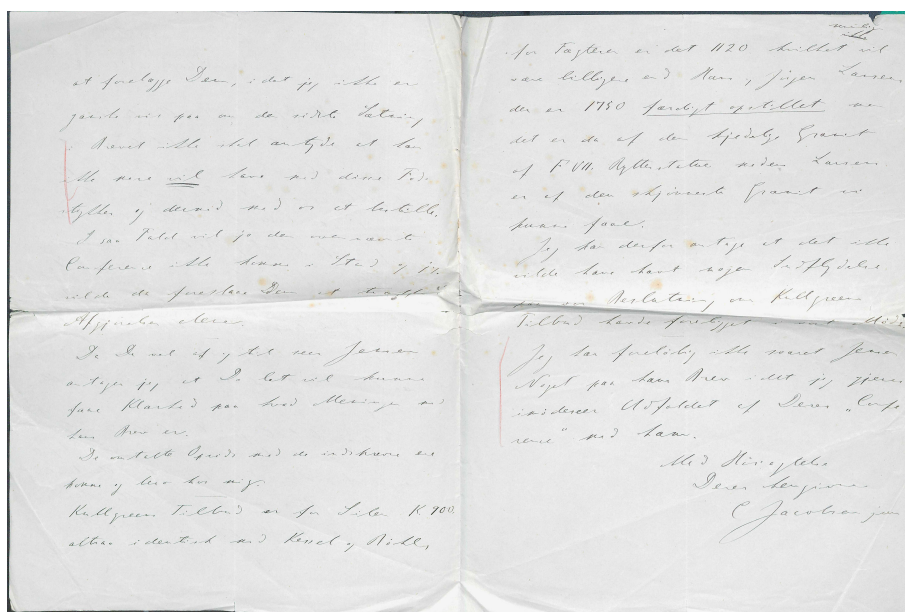 at forelægge Dem, idet jeg ikke er
ganske vis paa om den sidste Sætning
i Brevet ikke skal antyde at han
ikke mere vil have med disse Fod-
stykker og dermed med os at bestille.
I saa Fald vil jo den ovennævnte
Conference ikke komme i Stand og jeg
vilde da foreslaae Dem at træffe
Afgjørelsen alene.
Da De vel af og til seer Jensen
antager jeg at De let vil kunne
faae Klarhed paa hvad Meningen med
hans Brev er.
De omtalte Oprids med de indskrevne ere
komne og bero hos mig.
Kullgrens Tilbud er for Silen K 900.
altsaa identisk med Kessel og Röhls
for Fagteren er det 1120 hvilket vil
være billigere end Hans, Jörgen Larsen
der er 1750 færdigt opstillet men
det er da af den kjedelige Granit
af F VII. Rytterstatue medens Larsens
er af den skjönneste Granit vi
kunne faae.
Jeg kan derfor antage at det ikke
vilde have havt nogen Indflydelse
paa vor Beslutning om Kullgrens
Tilbud havde foreligget i vort Möde
Jeg har forelöbig ikke svaret Jensen
Noget paa hans Brev idet jeg gjerne
imödeseer Udfaldet af Deres „Confe
rence" med ham.
Med Höiagtelse
Deres hengivne
C Jacobsen jun